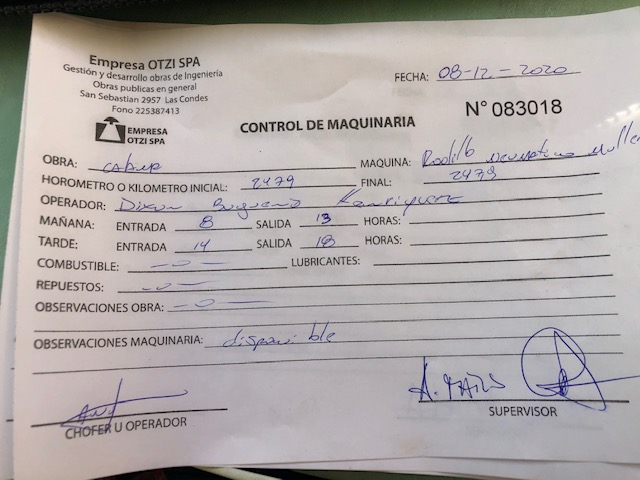 Empresa OTZI SPA
Gestión y desarrollo obras de Ingeniería
Obras publicas en general
San Sebastian 2957 Las Condes
Fono 225387413
EMPRESA
OTZI SPA
FECHA: 08-12-2020
CONTROL DE MAQUINARIA
N° 083018
OBRA: MAQUINA: Rodillo
HOROMETRO O KILOMETRO INICIAL: 2479 FINAL: 2479
OPERADOR:
MAÑANA: ENTRADA 8 SALIDA 13 HORAS:
TARDE: ENTRADA 14 SALIDA 18 HORAS:
COMBUSTIBLE: -0- LUBRICANTES:
REPUESTOS: -0-
OBSERVACIONES OBRA: -0-
OBSERVACIONES MAQUINARIA: disponible
CHOFER U OPERADOR
SUPERVISOR